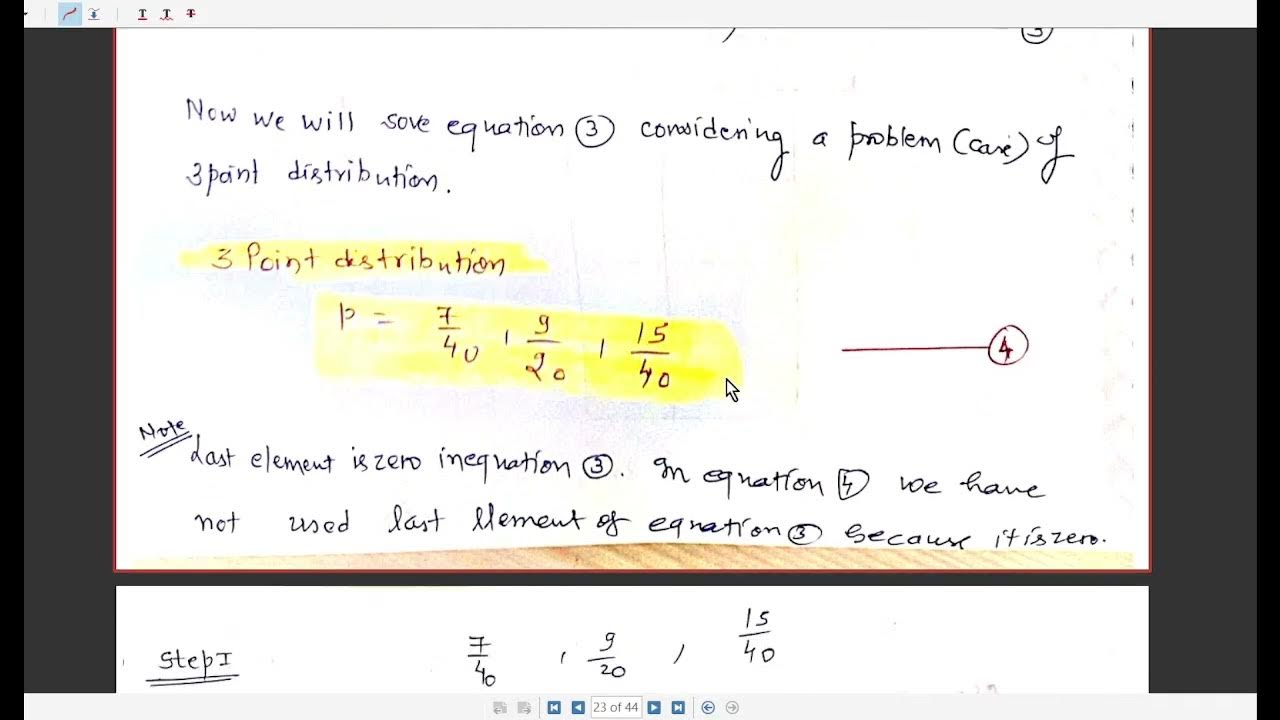 T T T
③
Now we will sove equation ③ considering a problem (case) of
3 point distribution.
3 Point distribution
P = 7/40 , 9/20 , 15/40
④
Note
Last element is zero in equation ③. In equation 4 we have
not used last element of equation ③ because it is zero.
Step I 7/40 , 9/20 , 15/40
23 of 44